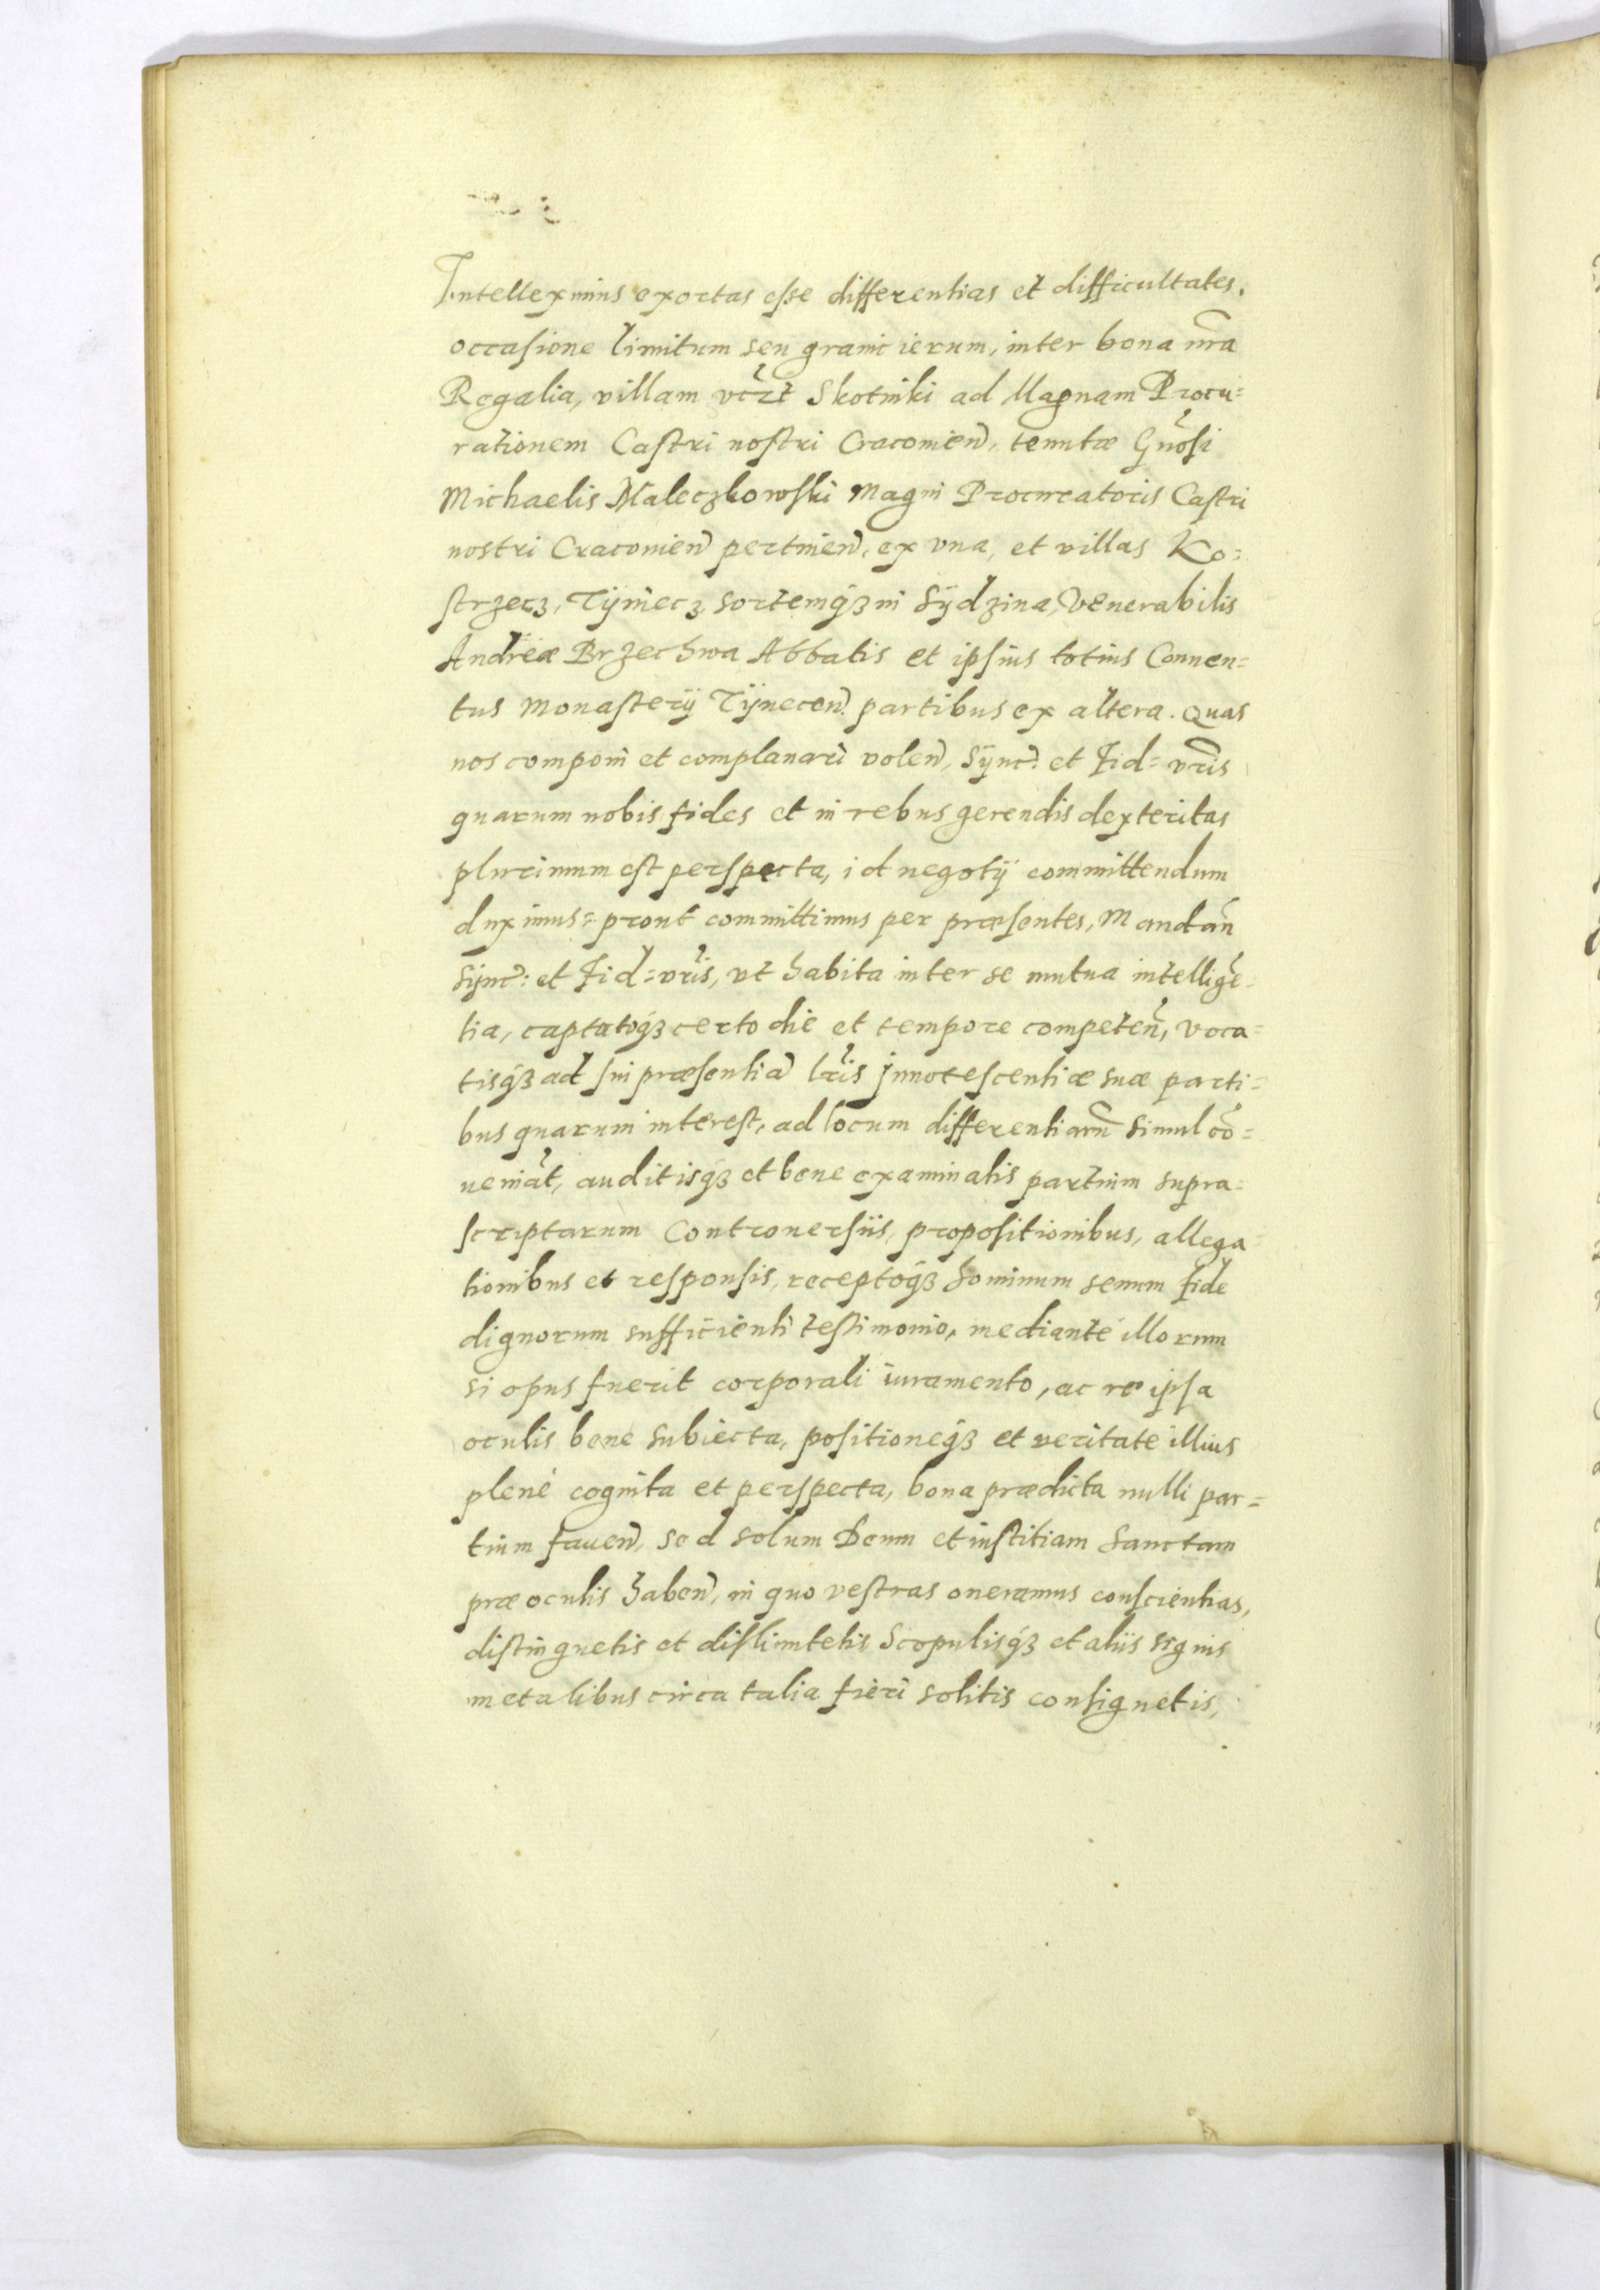 Intelleximus exortas esse differentias et difficultates.
occasione limitum seu granicierum, inter bona nr̃a
Regalia, villam vcz̃t Skotniki ad Magnam Procu=
rationem Castri nostri Cracouien̄, tenutæ Gñosi
Michaelis Maleczkowski Magni Procuratoris Castri
nostri Cracouien̄ pertinen̄, ex vna, et villas Ko=
strzecz, Tÿniecz, sortemq́ꝫ in Sÿdzina, Venerabilis
Andreæ Brzechwa Abbatis et ipsius totius Conuen=
tus Monasterÿ Tÿnecen̄. partibus ex altera. Quas
nos componi et complanari volen̄, Sÿnc̄: et Fid= vr̃is
quarum nobis fides et in rebus gerendis dexteritas
plurimum est perspecta, id negotÿ committendum
duximus= prout committimus per præsentes, Mandan̄
Sÿnc̄: et Fid=vr̃is, vt habita inter se mutua intellige̅=
tia, captatoq́ꝫ certo die et tempore competen̄, voca=
tisq́ꝫ ad sui præsentia̅ lr̃is Innotescentiæ suæ parti=
bus quarum interest, ad locum differentiaru̅ simul co̅=
uenia̅t, auditisq́ꝫ et bene examinatis partium supra=
scriptarum Controuersiis, propositionibus, allega=
tionibus et responsis, receptoq́ꝫ hominum senum fide
dignorum sufficienti testimonio, mediante illorum
si opus fuerit corporali iuramento, ac re ipsa
oculis bene subiecta, positioneq́ꝫ et veritate illius
plenè cognita et perspecta, bona prædicta nulli par=
tium fauen̄, sed solum Deum et iustitiam sanctam
præ oculis haben̄, in quo vestras oneramus conscientias,
distinguetis et dislimitetis Scopulisq́ꝫ et aliis signis
metalibus circa talia fieri solitis consignetis,